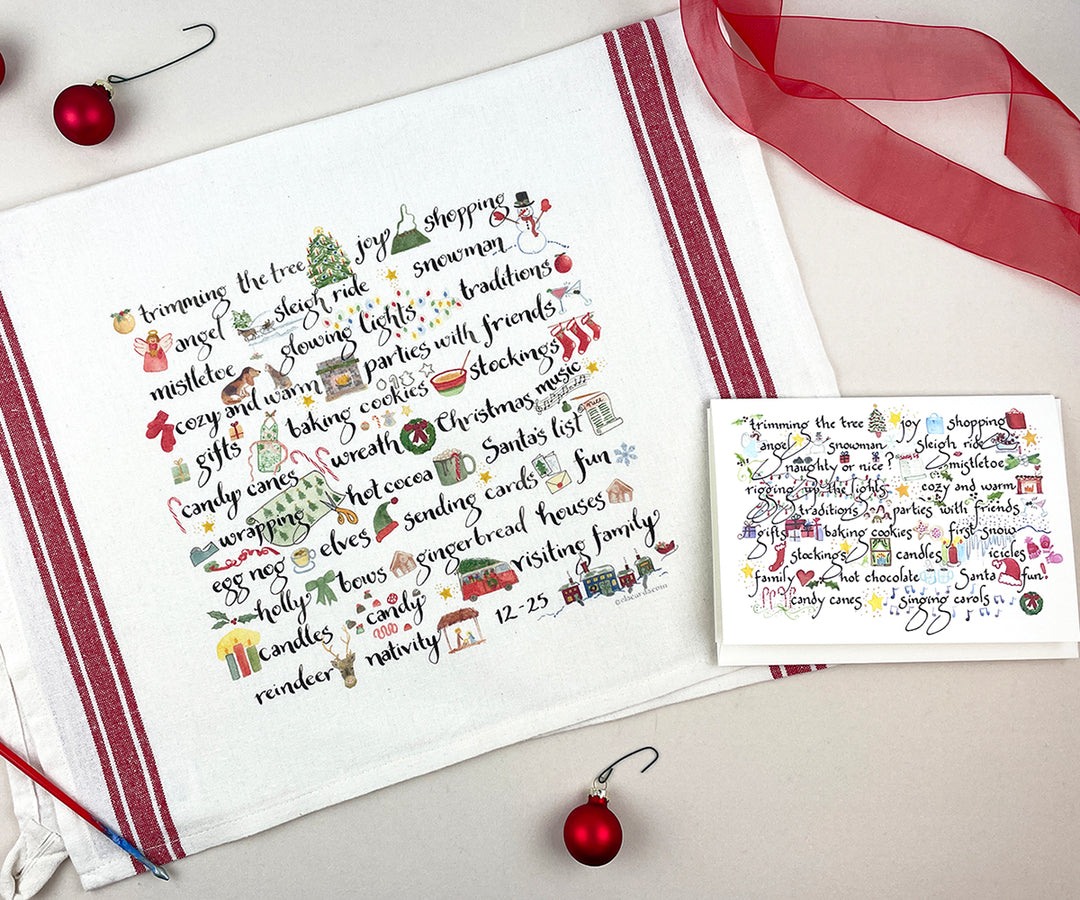 trimming the tree joy shopping
angel sleigh ride snowman
glowing lights traditions
mistletoe parties with friends
cozy and warm stockings
gifts baking cookies Christmas music
wreath Santa's list
candy canes hot cocoa fun
wrapping sending cards
elves gingerbread houses
egg nog bows visiting family
holly candy
candles nativity 12-25
reindeer
trimming the tree joy shopping
angel snowman sleigh ride
naughty or nice? mistletoe
rigging up the lights cozy and warm
traditions parties with friends
gifts baking cookies first snow
stockings candles icicles
family hot chocolate Santa fun!
candy canes singing carols